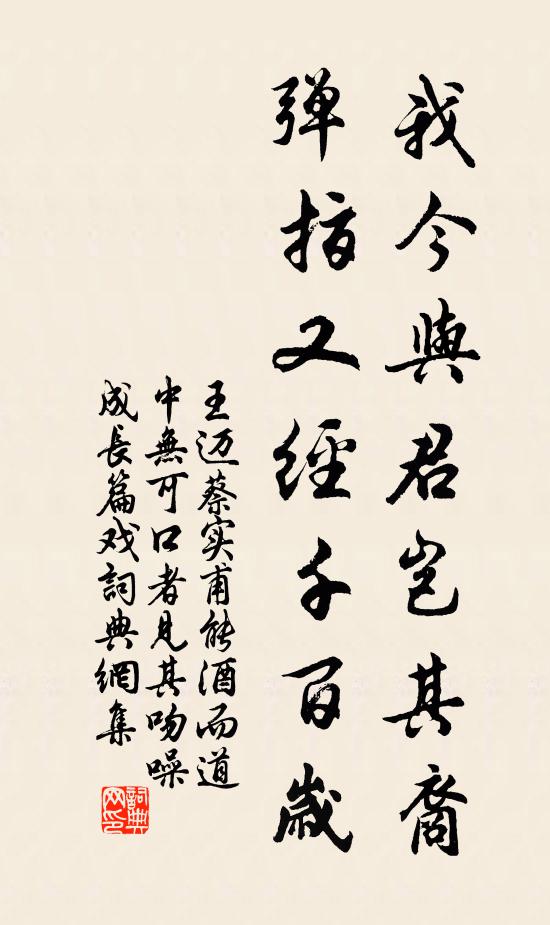 我今與君豈其裔
弹指又經千百歲
王迈蔡实甫能酒而道
中無可口者見其吻噪
成長篇戏詞典網集
詞典网印